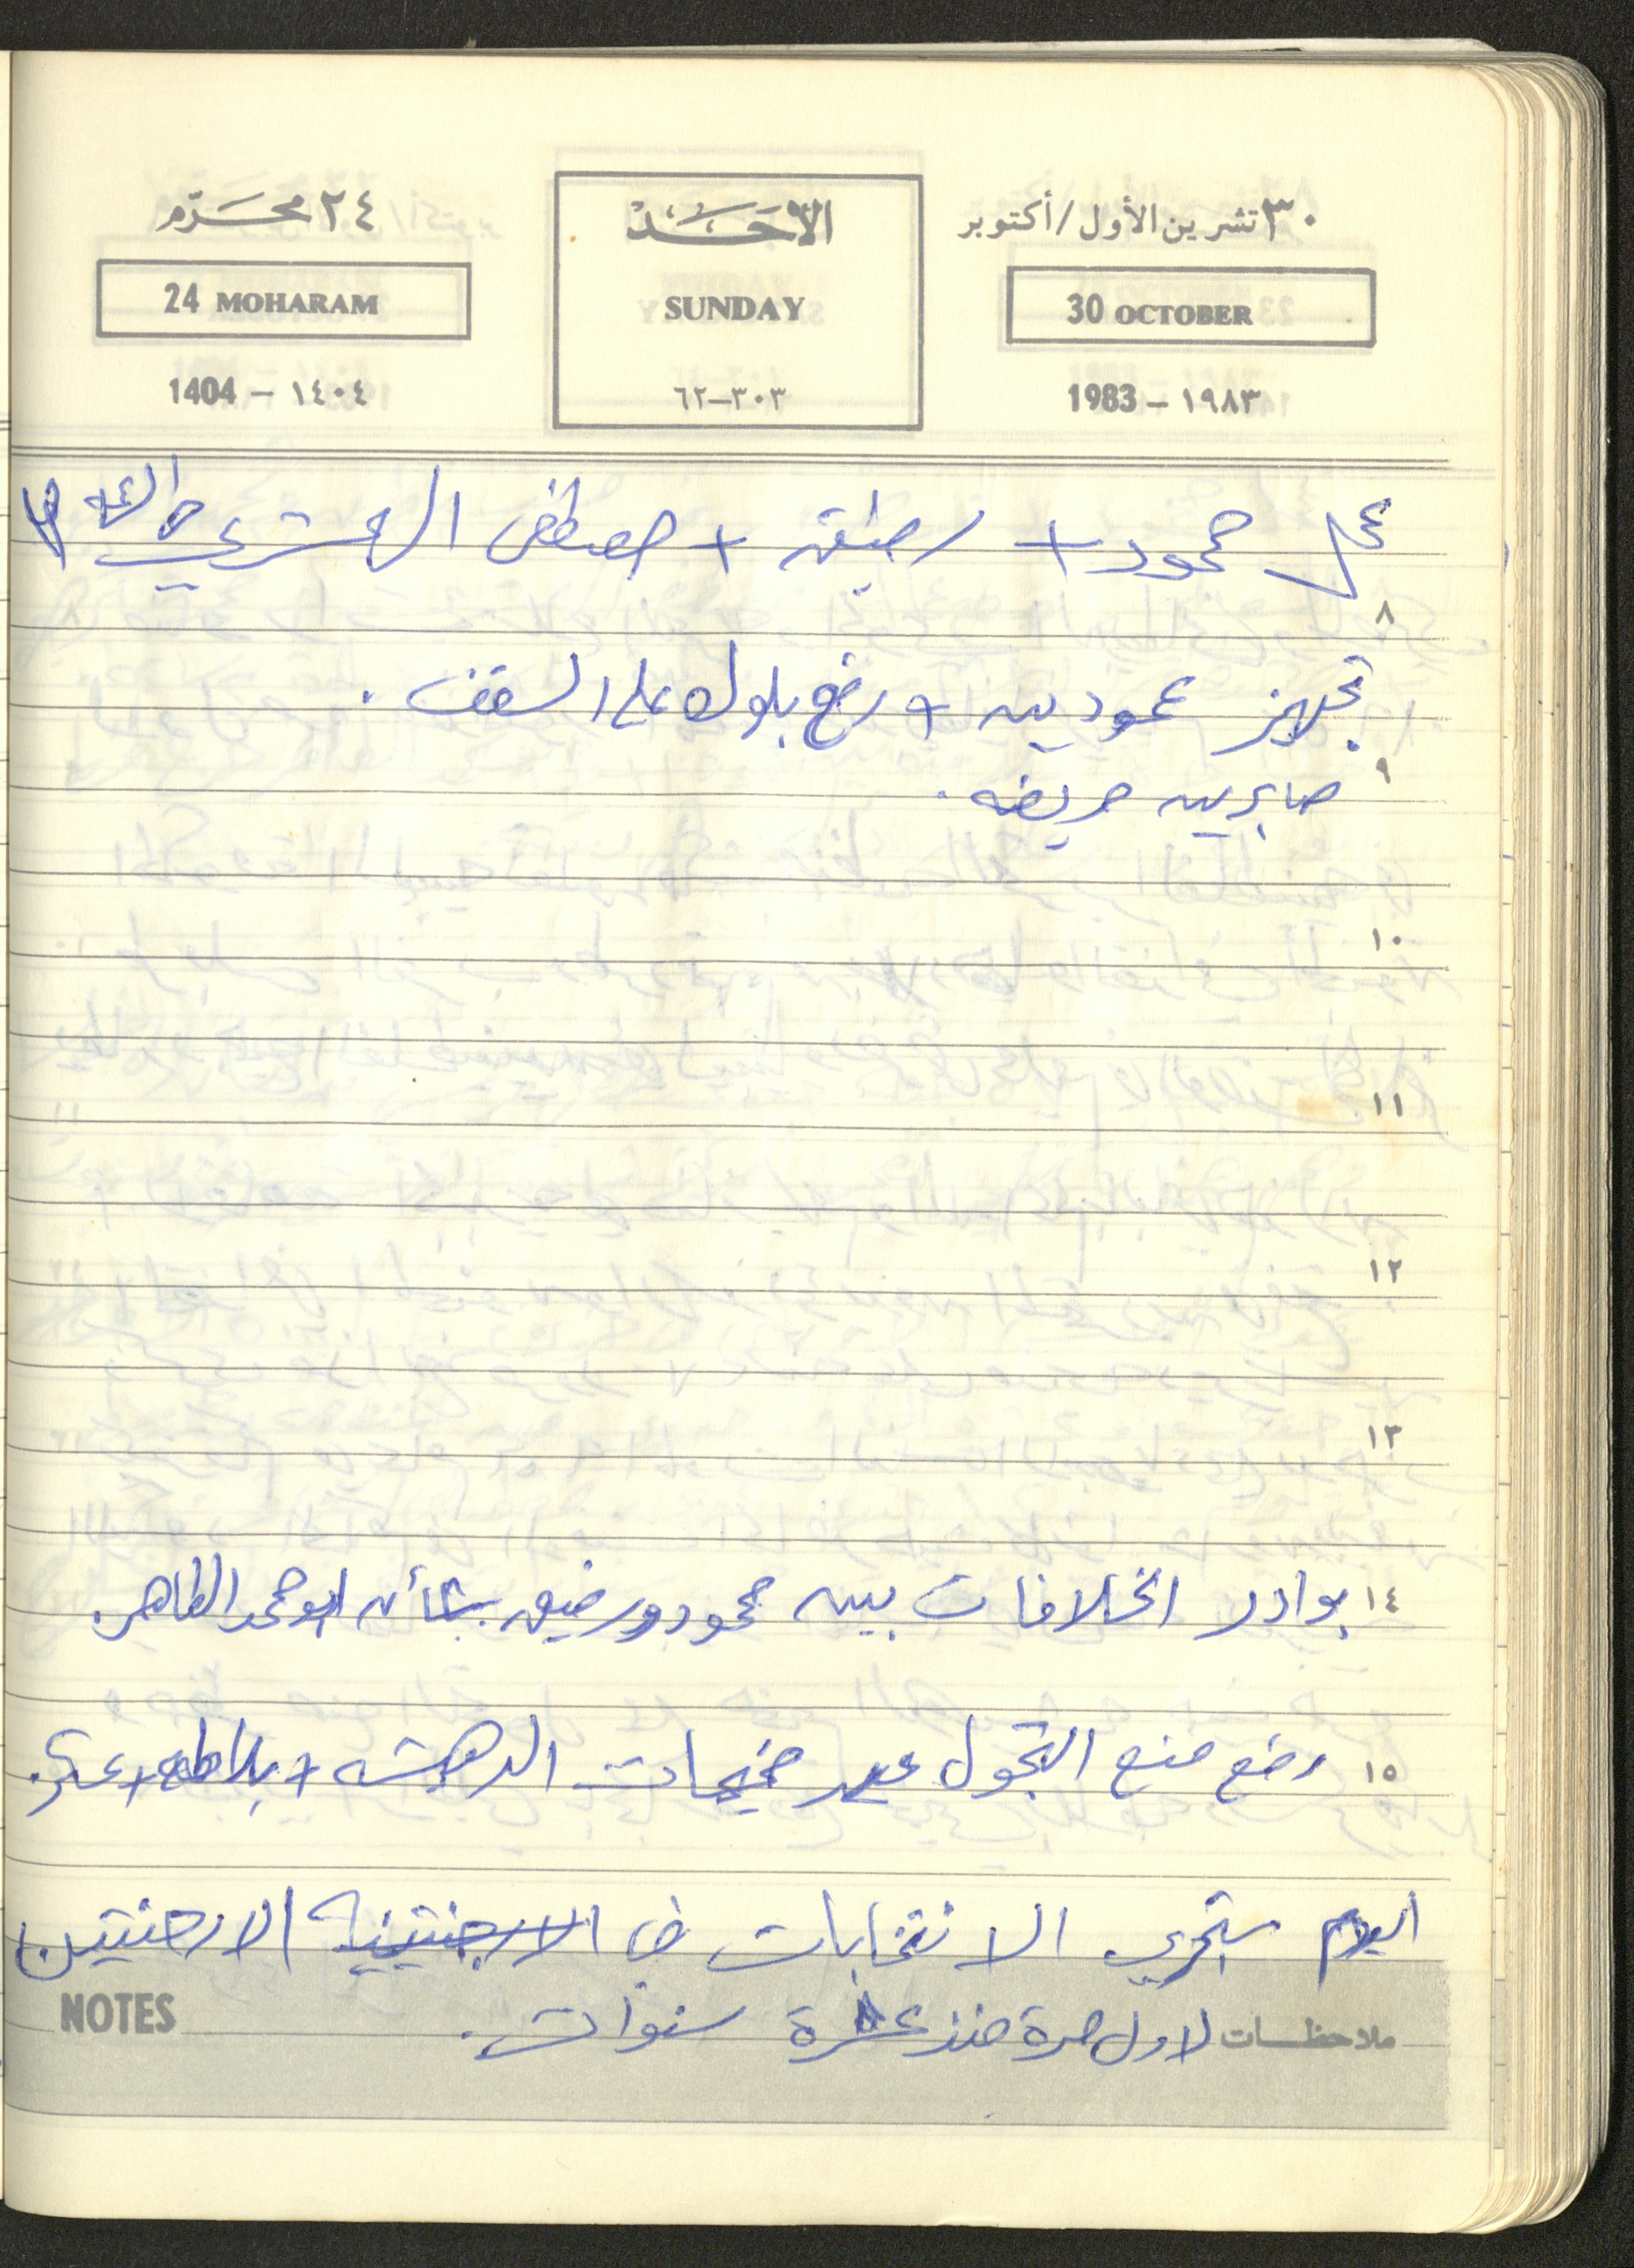 ٣٠ تشرين الأول/أكتوبر
30 OCTOBER
١٩٨٣ - 1983
الأحد
SUNDAY
٣٠٣-٦٢
٢٤ محرّم
24 MOHARAM
١٤٠٤ - 1404
عمل محمود + رفيق + مصطفى
٨
تجهيز عمودين + رفع بلوك على السقف.
٩
صابرين مريضه.
١٠
١١
١٢
١٣
١٤ بوادر الخلافات بين محمود ورفيق بشأن ابو محمد الطاهر.
١٥ رفع منع التجول عن مخيمات الدهيشه + بلاطه + عسكر.
اليوم ستجري الانتخابات في الارجنتينيه الارجنتين
ملاحظات لاول مرة منذ عشرة سنوات.
NOTES